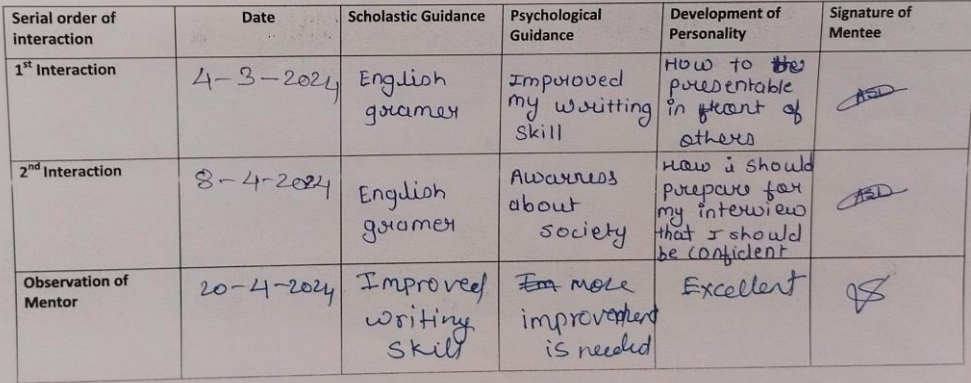 Serial order of interaction Date Scholastic Guidance Psychological Guidance Development of Personality Signature of Mentee
1st Interaction 4-3-2024 English gramer Improved my writting skill How to be presentable in front of others ASD
2nd Interaction 8-4-2024 English gramer Awarness about society How i should prepare for my interview that I should be confident ASD
Observation of Mentor 20-4-2024 Improved writing skill more improvement is needed Excellent